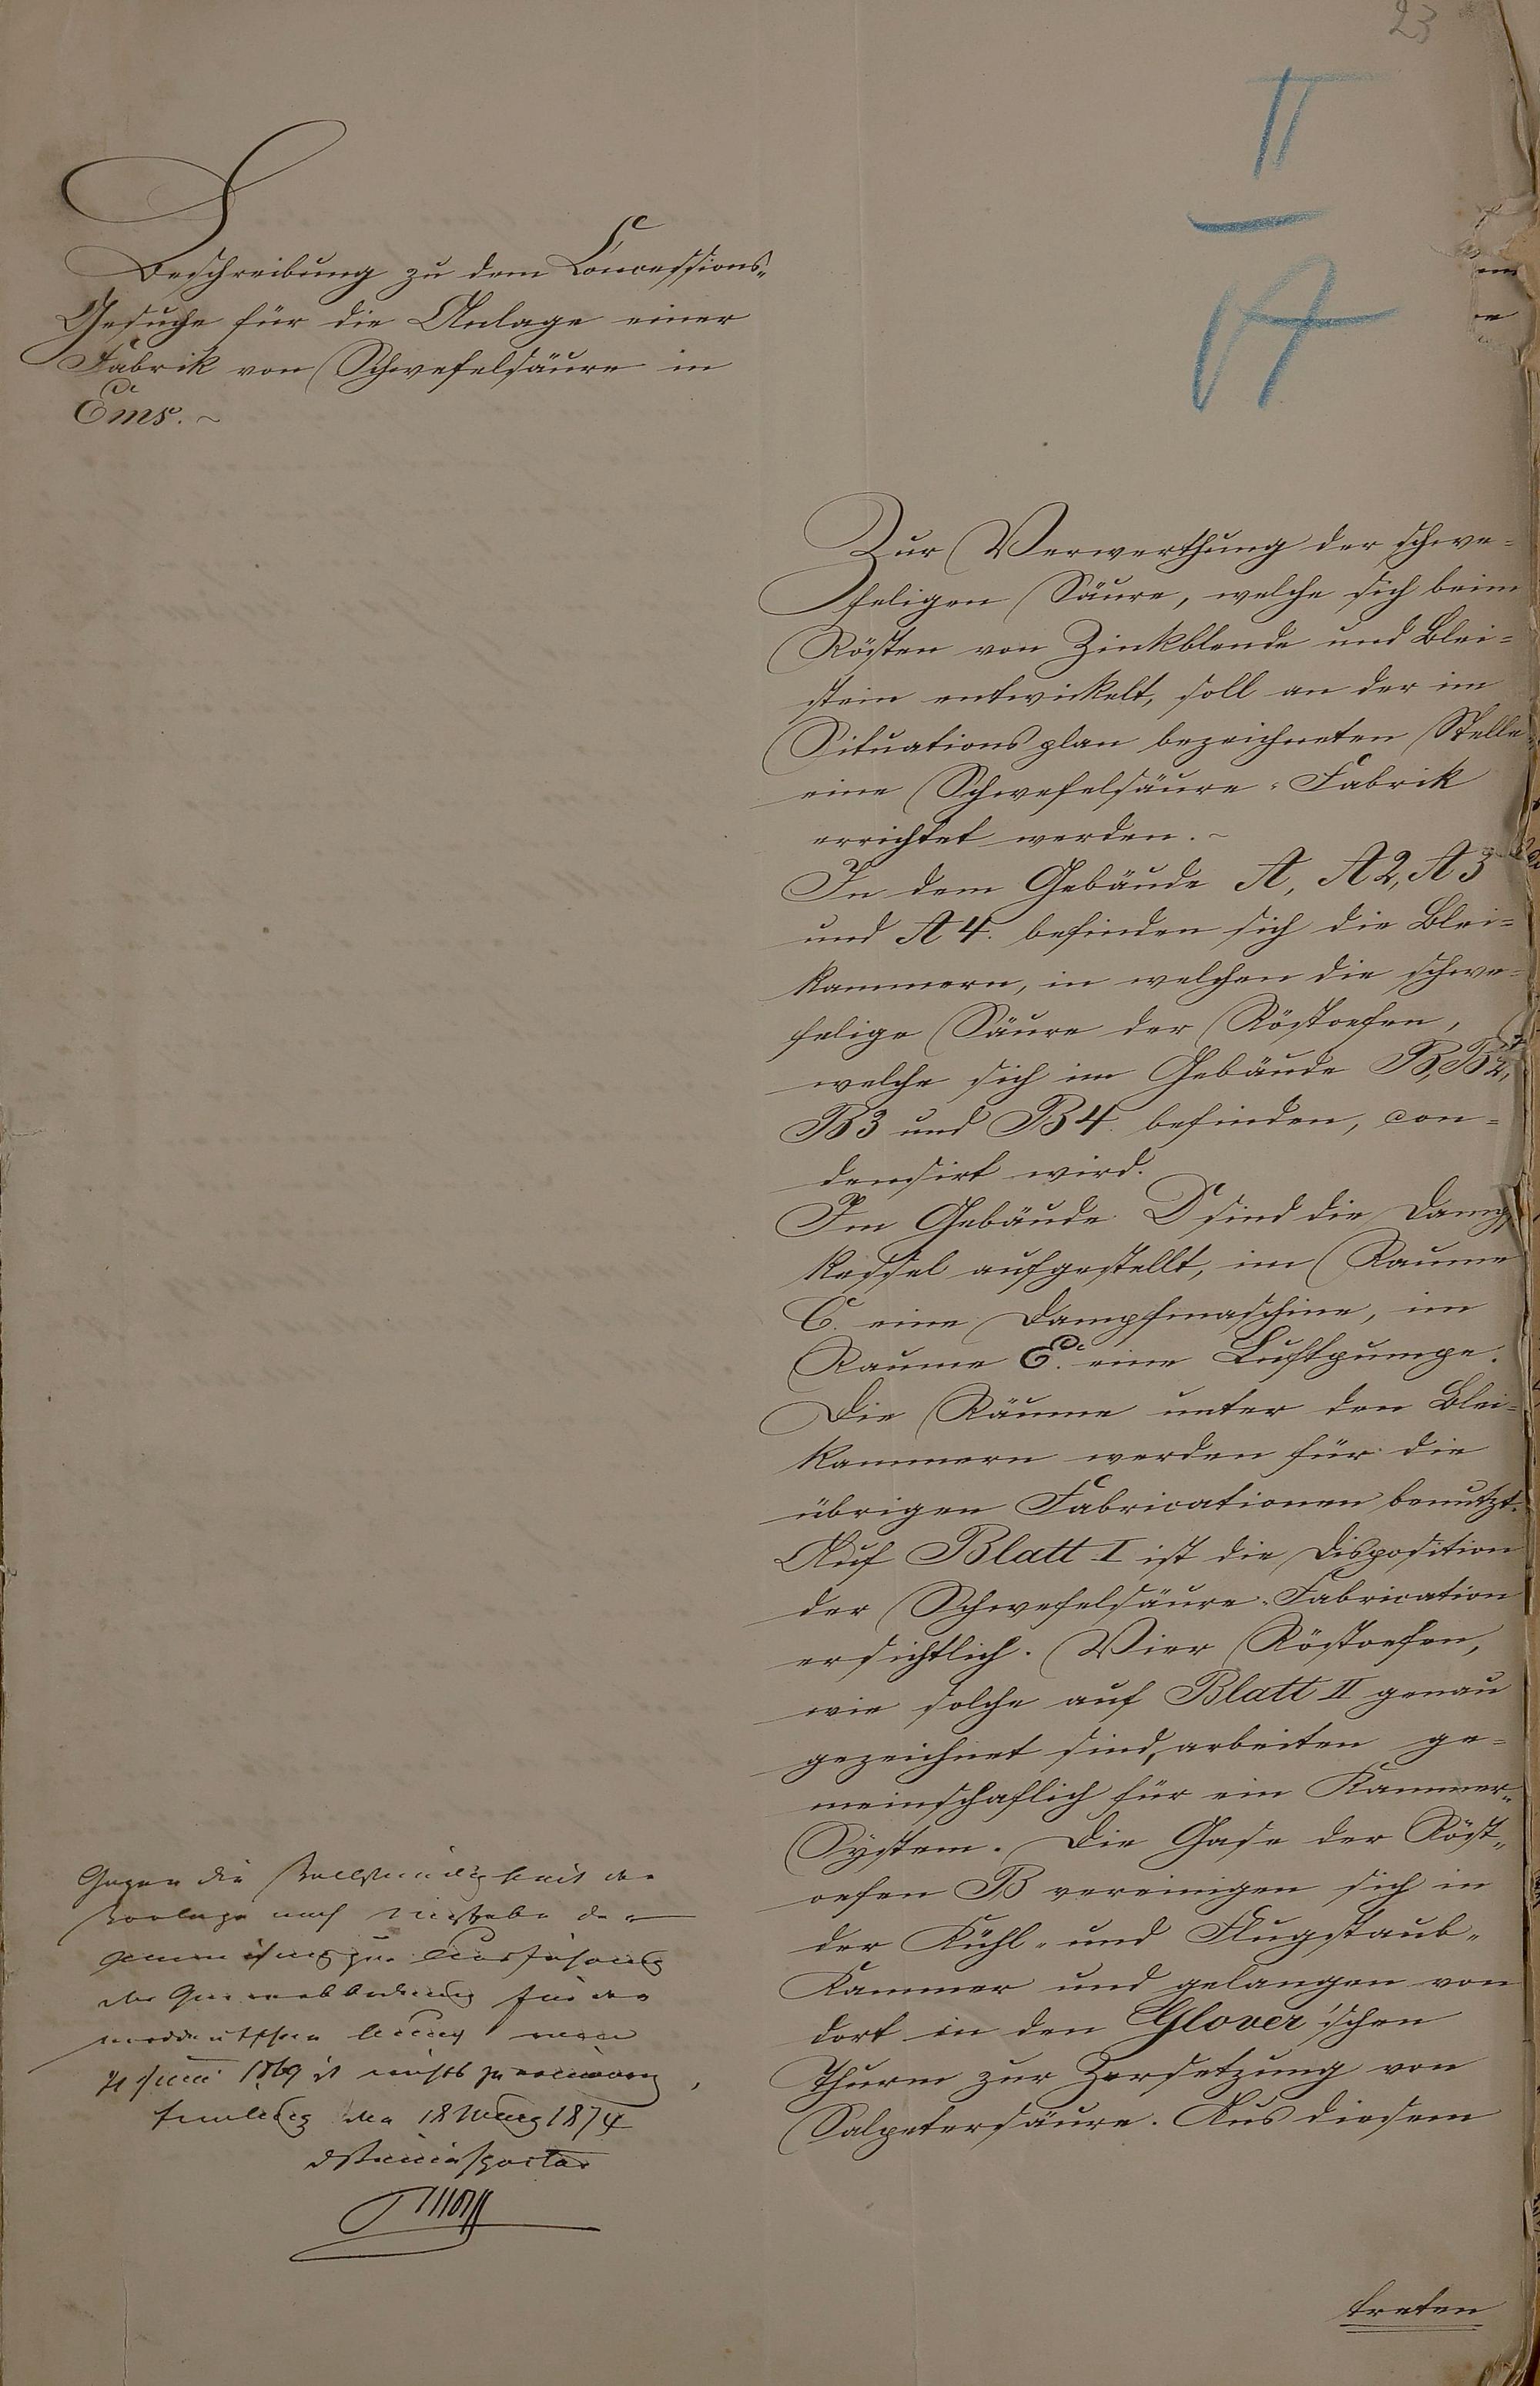 23
II
A
Beschreibung zu dem Concessions-
Gesuche für die Anlage einer
Fabrik von Schwefelsäure in
Ems. ~
Zur Verwerthung der schwe-
feligen Säure, welche sich beim
Rösten von Zinkblende und Blei-
stein entwickelt, soll an der im
Situationsplan bezeichneten Stelle
eine Schwefelsäure-Fabrik
errichtet werden. ~
In dem Gebäude A, A2, A3
und A4. befinden sich die Blei-
kammern, in welchen die schwe-
felige Säure der Röstoefen,
welche sich im Gebäude B, B2,
B3 und B4. befinden, con-
densirt wird.
Im Gebäude D sind die Dampf
kessel aufgestellt, im Raume
C. eine Dampfmaschine, im
Raume E. eine Luftpumpe.
Die Räume unter den Blei-
kammern werden für die
übrigen Fabricationen benutzt.
Auf Blatt I ist die Disposition
der Schwefelsäure-Fabrication
ersichtlich. Vier Röstoefen,
wie solche auf Blatt II genau
gezeichnet sind, arbeiten ge-
meinschaflich für ein Kammer-
System. Die Gase der Röst-
oefen B vereinigen sich in
der Kühl- und Flugstaub-
Kammer und gelangen von
dort in den Glover'schen
Thurm zur Zersetzung von
Salpetersäure. Aus diesem
treten
Gegen die Vollständigkeit der
Vorlage nach Maßgabe der
Anweisung zur Ausführung
der Gewerbeordnung für den
norddeutschen Bund vom
4 Juni 1869 ist nichts zu erinnern,
den 18 März 1874